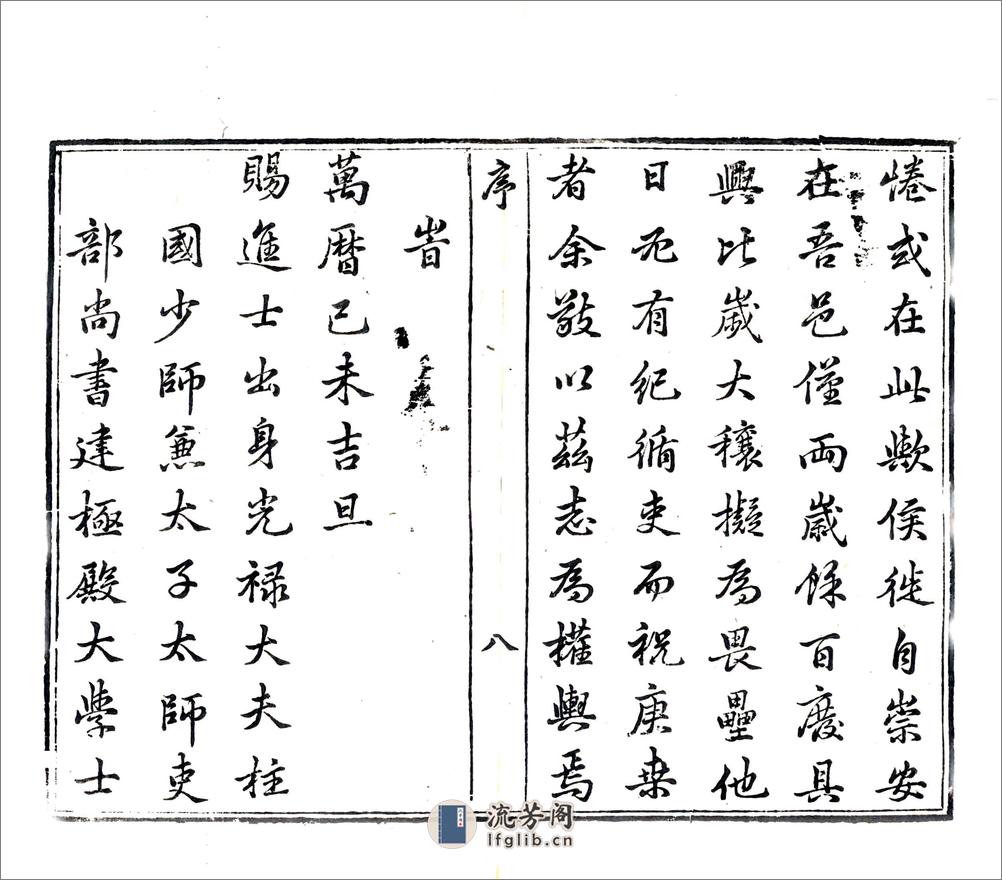 惓或在此歟侯徙自崇安
在吾邑僅兩歲餘百廢具
興比歲大穰擬為畏壘他
日尤有紀循吏而祝庚桑
者余敬以茲志為權輿焉
序
八
旹
萬曆己未吉旦
賜進士出身光祿大夫柱
國少師兼太子太師吏
部尚書建極殿大學士
流芳阁
lfglib.cn